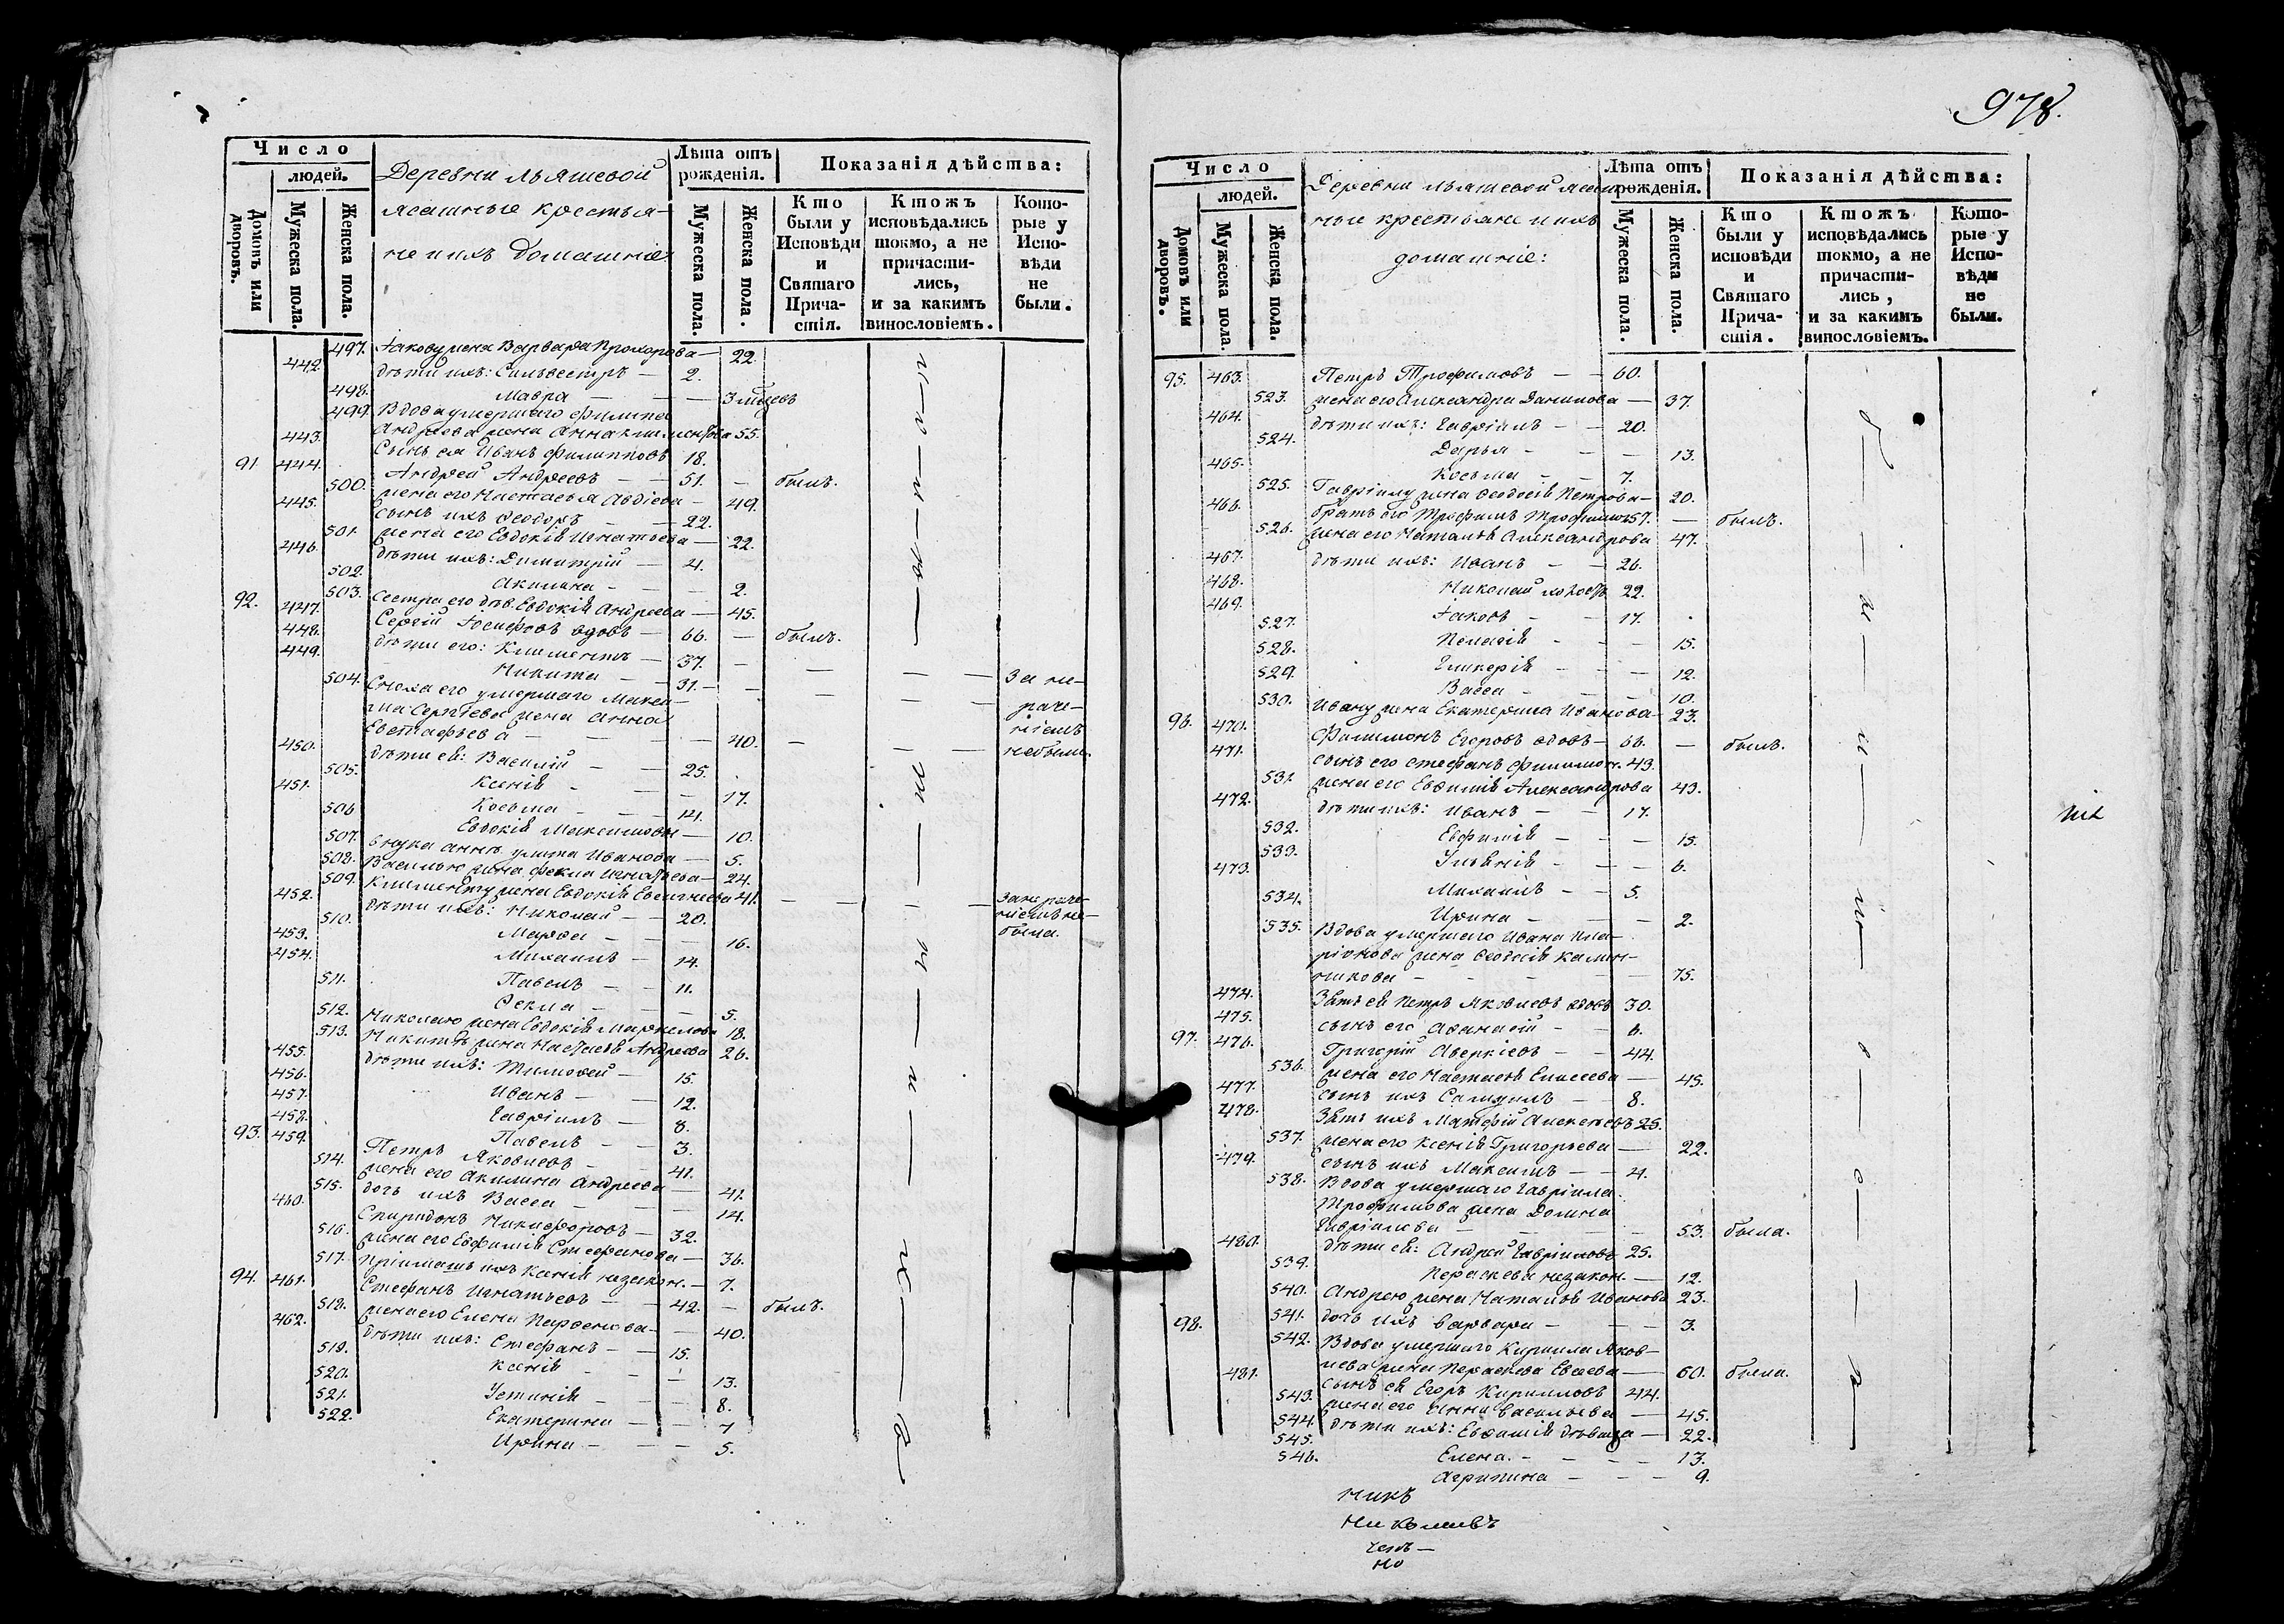 978.
Число
людей.
Домовъ или дворовъ.
Мужеска пола.
Женска пола.
Деревни Льяшевой
ясашные крестья-
не и ихъ домашніе:
Лѣта отъ рожденія.
Мужеска пола.
Женска пола.
Показанія дѣйства:
Кто были у Исповѣди и Святаго Прича-стія.
Ктожъ исповѣдались токмо, а не причасти-лись, и за какимъ винословіемъ.
Кото-рые у Испо-вѣди не были.
497. Іакову жена Варвара Прохорова — 22.
442. дѣти ихъ: Сильвестръ — 2.
498. Мавра — — 3 мѣсяцевъ
499. Вдова умершаго Филипа
Андреева жена Анна Климентова 55.
443. Сынъ ея Иванъ Филипповъ 18.
91. 444. Андрей Андреевъ — 51. — былъ.
500. жена его Настасья Авдіева — 49.
445. сынъ ихъ Ѳеодоръ — 22.
501. жена его Евдокія Игнатьева — 22.
446. дѣти ихъ: Димитрій — 4.
502. Акилина — — 2.
503. Сестра его дѣв. Евдокія Андреева — 45.
92. 447. Сергій Іосифовъ вдовъ — 66. — былъ.
448. дѣти его: Климентъ — 37. —
449. Никита — 31. — За не-
504. Сноха его умершаго Макси-
ма Сергіева жена Анна раче-
Евстафьева — — 40. — ніемъ
450. дѣти ея: Василій — 25. небыли.
505. Ксенія — — 17.
451. Косьма — — 14.
506. Евдокія Максимова — 10.
507. внука Анны Улита Иванова — 5.
508. Василью жена Фекла Игнатьева — 24.
509. Клименту жена Евдокія Евсигнеева 41. — За нераче-
452. дѣти ихъ: Николай — 20. ніемъ не-
510. Марфа — — 16. была.
453. Михаилъ — 14.
454. Павелъ — 11.
511. Ѳекла — — 5.
512. Николаю жена Евдокія Маркелова 18.
513. Никитѣ жена Настасья Андреева 26.
455. дѣти ихъ: Тимоѳей — 15.
456. Иванъ — 12.
457. Гавріилъ — 8.
458. Павелъ — 3.
93. 459. Петръ Яковлевъ — 41.
514. жена его Акилина Андреева — 41.
515. дочь ихъ Васса — — 14.
460. Спиридонъ Никифоровъ — 32.
516. жена его Евфимія Стефанова — 36.
517. Пріимашъ ихъ Ксенія незакон. — 7.
94. 461. Стефанъ Игнатьевъ — 42. — былъ.
518. жена его Елена Парфенова — 40.
462. дѣти ихъ: Стефанъ — 15.
519. Ксенія — — 13.
520. Устинія — — 8.
521. Екатерина — — 7
522. Ирина — — 5.
Число
людей.
Домовъ или дворовъ.
Мужеска пола.
Женска пола.
Деревни Льяшевой ясаш-
ные крестьяне и ихъ
домашніе:
Лѣта отъ рожденія.
Мужеска пола.
Женска пола.
Показанія дѣйства:
Кто были у исповѣди и Святаго Прича-стія.
Ктожъ исповѣдались токмо, а не причасти-лись, и за какимъ винословіемъ.
Кото-рые у Испо-вѣди не были.
95. 463. Петръ Трофимовъ — — 60.
523. жена его Александра Данилова — 37.
464. дѣти ихъ: Гавріилъ — — 20.
524. Дарья — — — 13.
465. Косьма — — 7.
525. Гавріилу жена Ѳеодосія Петрова — 20.
466. братъ его Трофимъ Трофимовъ 57. — былъ.
526. жена его Наталья Александрова 47.
467. дѣти ихъ: Иванъ — — 26.
468. Николай холостъ 22.
469. Іаковъ — — 17.
527. Пелагія — — 15.
528. Гликерія — — 12.
529. Васса — — 10.
530. Ивану жена Екатерина Иванова — 23.
96. 470. Филимонъ Егоровъ вдовъ — 66. — былъ.
471. сынъ его Стефанъ Филимон. 43.
531. жена его Евфимія Александрова 43.
472. дѣти ихъ: Иванъ — 17.
532. Евфимія — — 15.
533. Ульянія — — 6.
473. Михаилъ — — 5.
534. Ирина — — 2.
535. Вдова умершаго Ивана Ила-
ріонова жена Ѳеодосія Калин-
никова — — 75.
474. Зять ея Петръ Яковлевъ вдовъ 30.
475. сынъ его Аѳанасій — — 6.
97. 476. Григорій Аверкіевъ — — 44.
536. жена его Настасья Елисеева — 45.
477. сынъ ихъ Самуилъ — — 8.
478. Зять ихъ Матфій Алексѣевъ 25.
537. жена его Ксенія Григорьева — 22.
479. сынъ ихъ Максимъ — — 4.
538. Вдова умершаго Гавріила
Трофимова жена Домна
Гавріилова — — 53. была.
480. дѣти ея: Андрей Гавріиловъ 25.
539. Параскева незакон. — 12.
540. Андрею жена Наталья Иванова 23.
541. дочь ихъ Варвара — — 3.
98. 542. Вдова умершаго Кирилла Яков-
лева жена Параскева Евсеева — 60. была.
481. сынъ ея Егоръ Кирилловъ 44.
543. жена его Анна Васильева — 45.
544. дѣти ихъ: Евфимія дѣвица — 22.
545. Елена — — 13.
546. Агрипина — — 9.